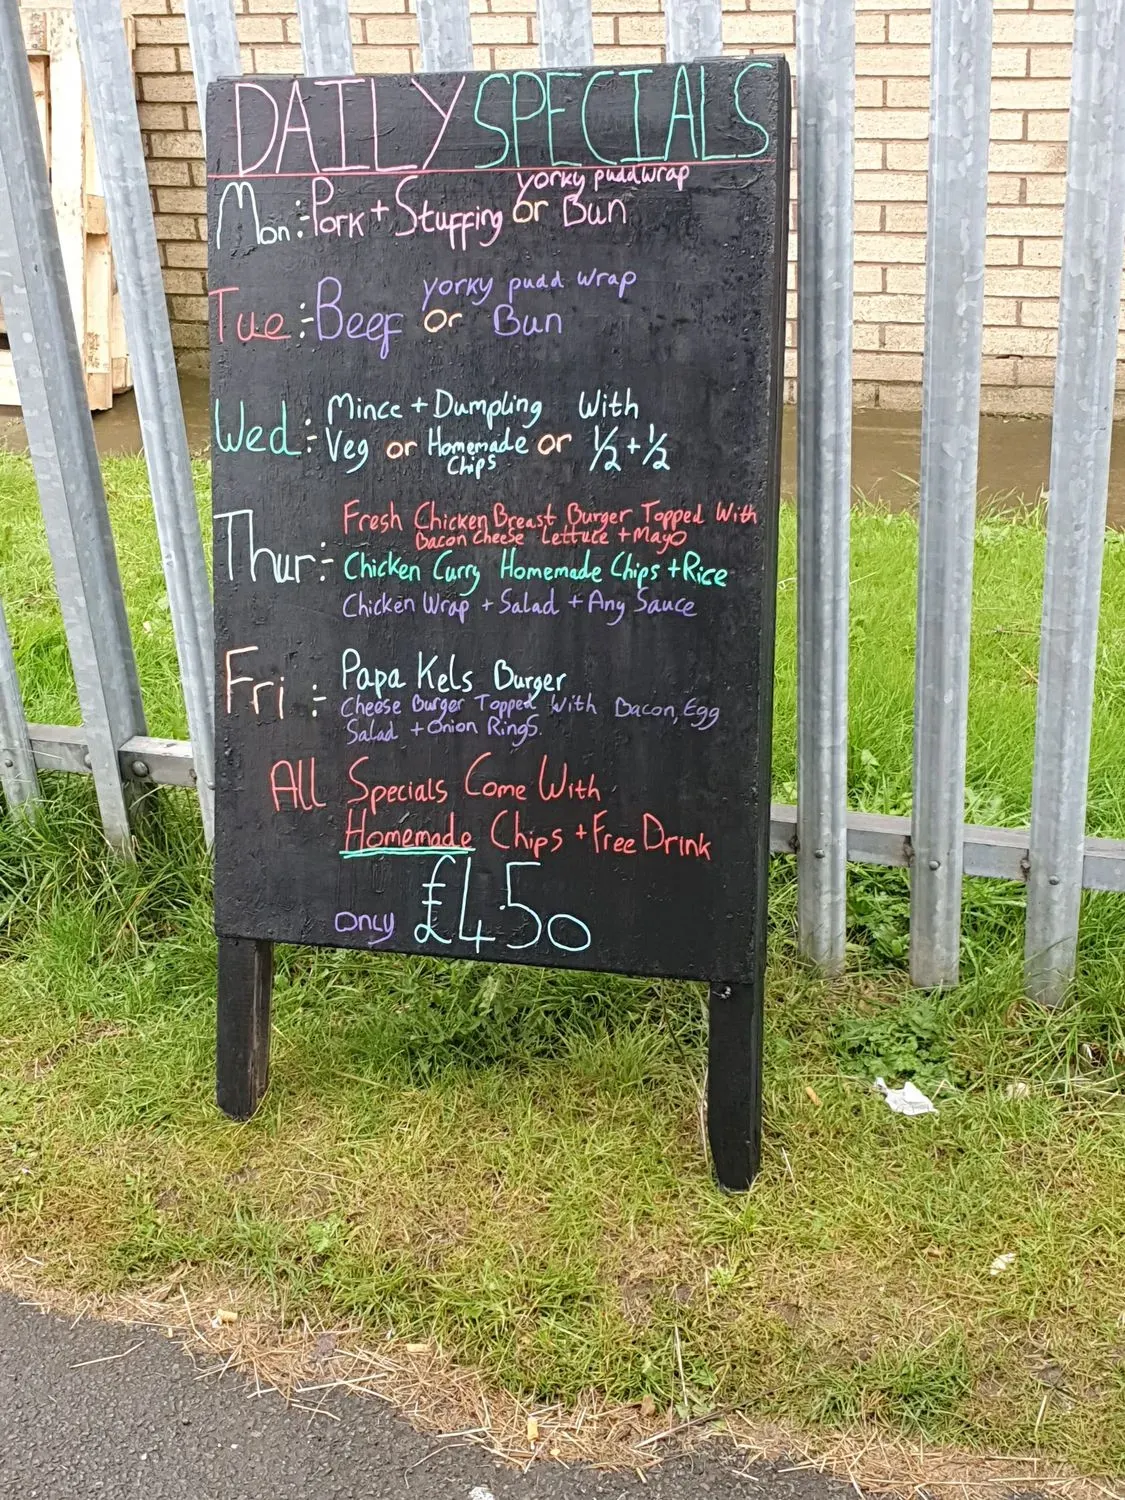 DAILY SPECIALS
yorky pudd wrap
Mon:- Pork + Stuffing or Bun
yorky pudd wrap
Tue:- Beef or Bun
Mince + Dumpling With
Wed:- Veg or Homemade or 1/2 + 1/2
Chips
Fresh Chicken Breast Burger Topped With
Bacon Cheese Lettuce + Mayo
Thur:- Chicken Curry Homemade Chips + Rice
Chicken Wrap + Salad + Any Sauce
Fri:- Papa Kels Burger
Cheese Burger Topped With Bacon, Egg
Salad + Onion Rings.
All Specials Come With
Homemade Chips + Free Drink
Only £4.50